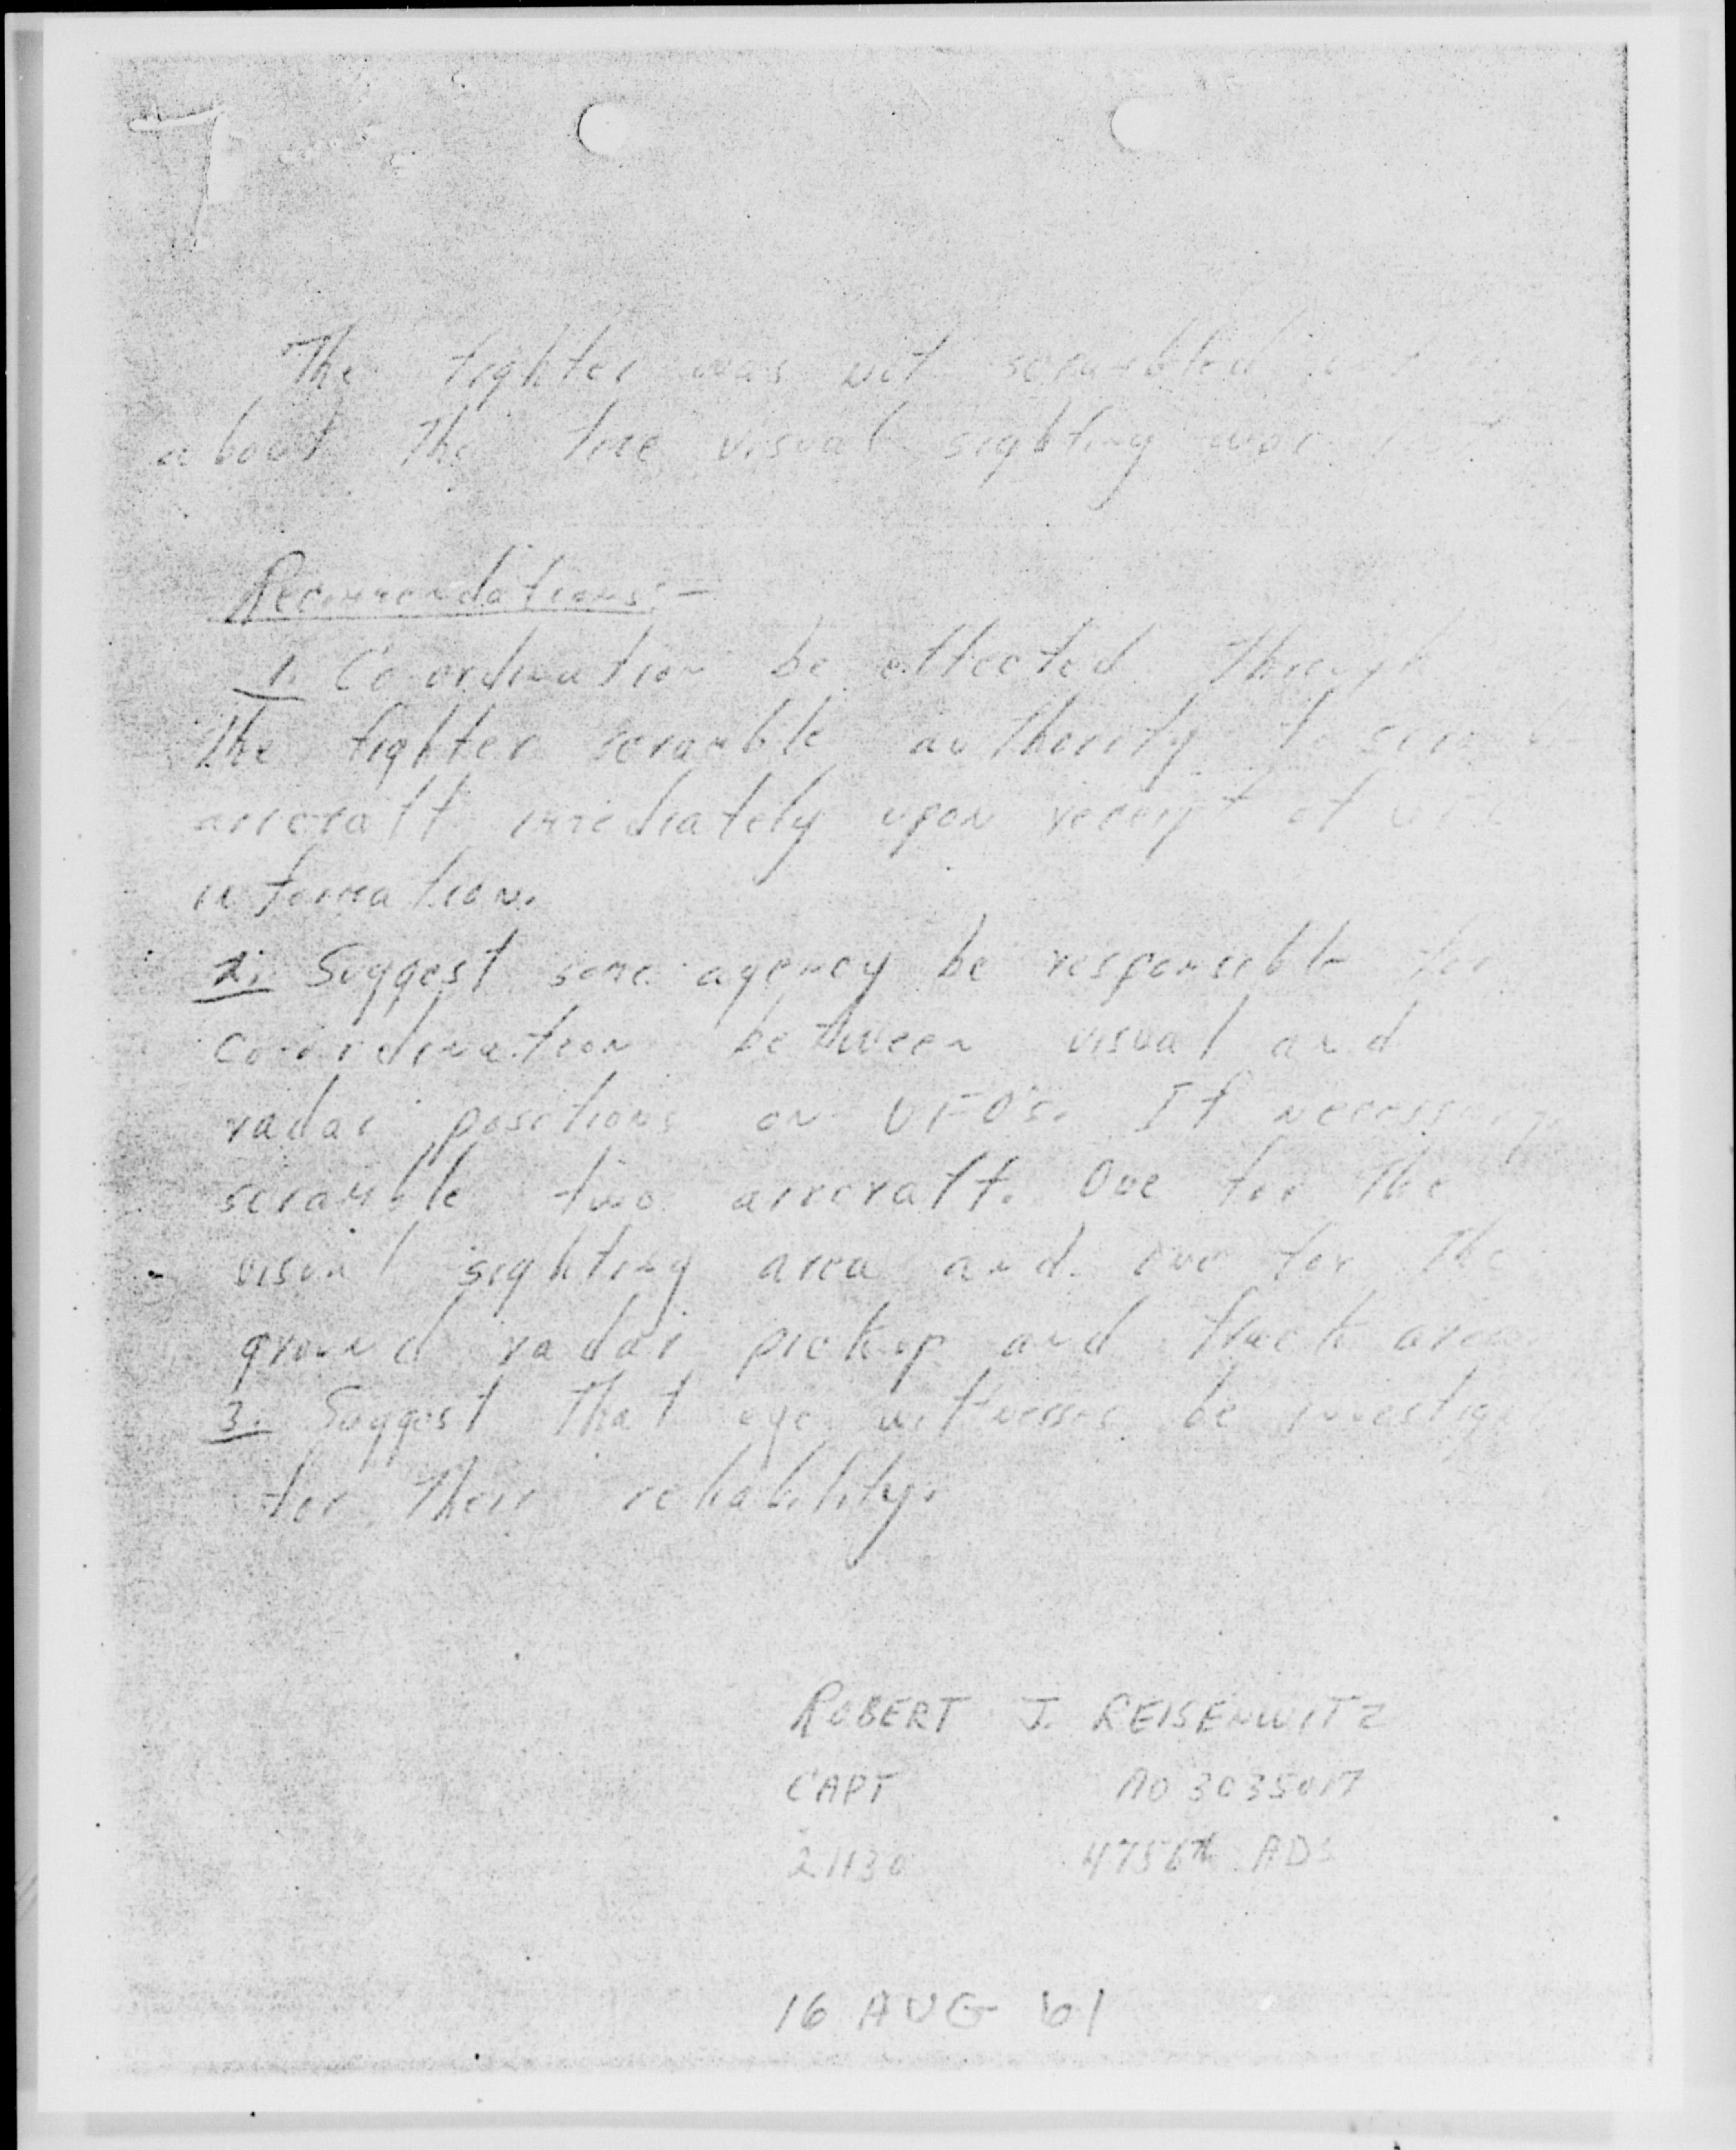 The fighter was not scrambled
about the time visual sighting was
Recommendations:-
1. Co-ordination be effected through
the fighter scramble authority to
aircraft immediately upon receipt of
information.
2. Suggest some agency be responsible for
co-ordination between visual and
radar positions on UFO's. If necessary
scramble two aircraft. One for the
visual sighting area and one for the
ground radar pickup and track area
3. Suggest that eye witnesses be
for their reliability.
ROBERT J. REISENWITZ
CAPT AO 3035017
21130 4756th ADS
16 AUG 61